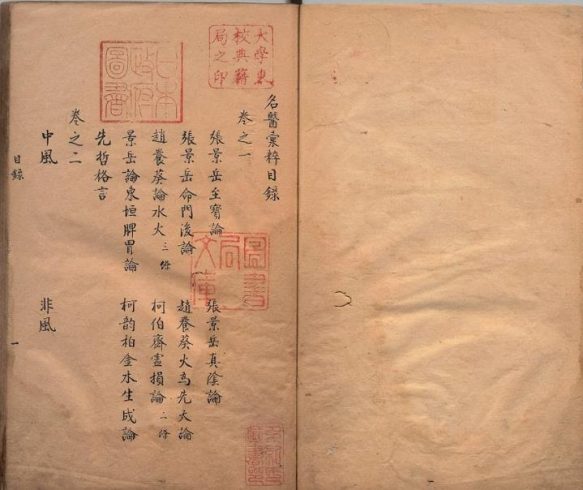 名醫彙粹目錄
卷之一
張景岳至寶論　張景岳真陰論
張景岳命門後論　趙養葵火為先天論
趙養葵論水火 三條　柯伯齋虛損論 二條
景岳論東垣脾胃論　柯韵柏金水生成論
先哲格言
卷之二
中風　非風
目錄　一
大學東
校典籍
局之印
日本
政府
圖書
圖書
局
文庫